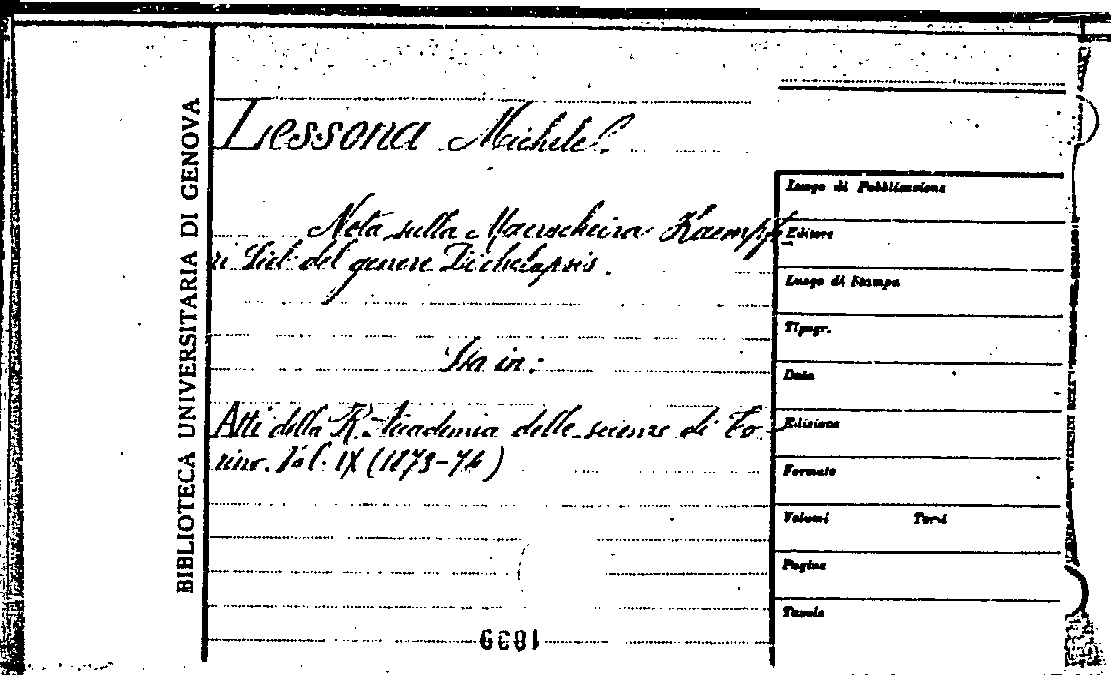 BIBLIOTECA UNIVERSITARIA DI GENOVA
Lessona Michele.
Nota sulla Macrocheira Kaempf-
ri Sieb. del genere Dichelapsis.
Sta in:
Atti della R. Accademia delle scienze di To-
rino. Vol. IX (1873-74)
1839
Luogo di Pubblicazione
Editore
Luogo di Stampa
Tipogr.
Data
Edizione
Formato
Volumi Tomi
Pagine
Tavole